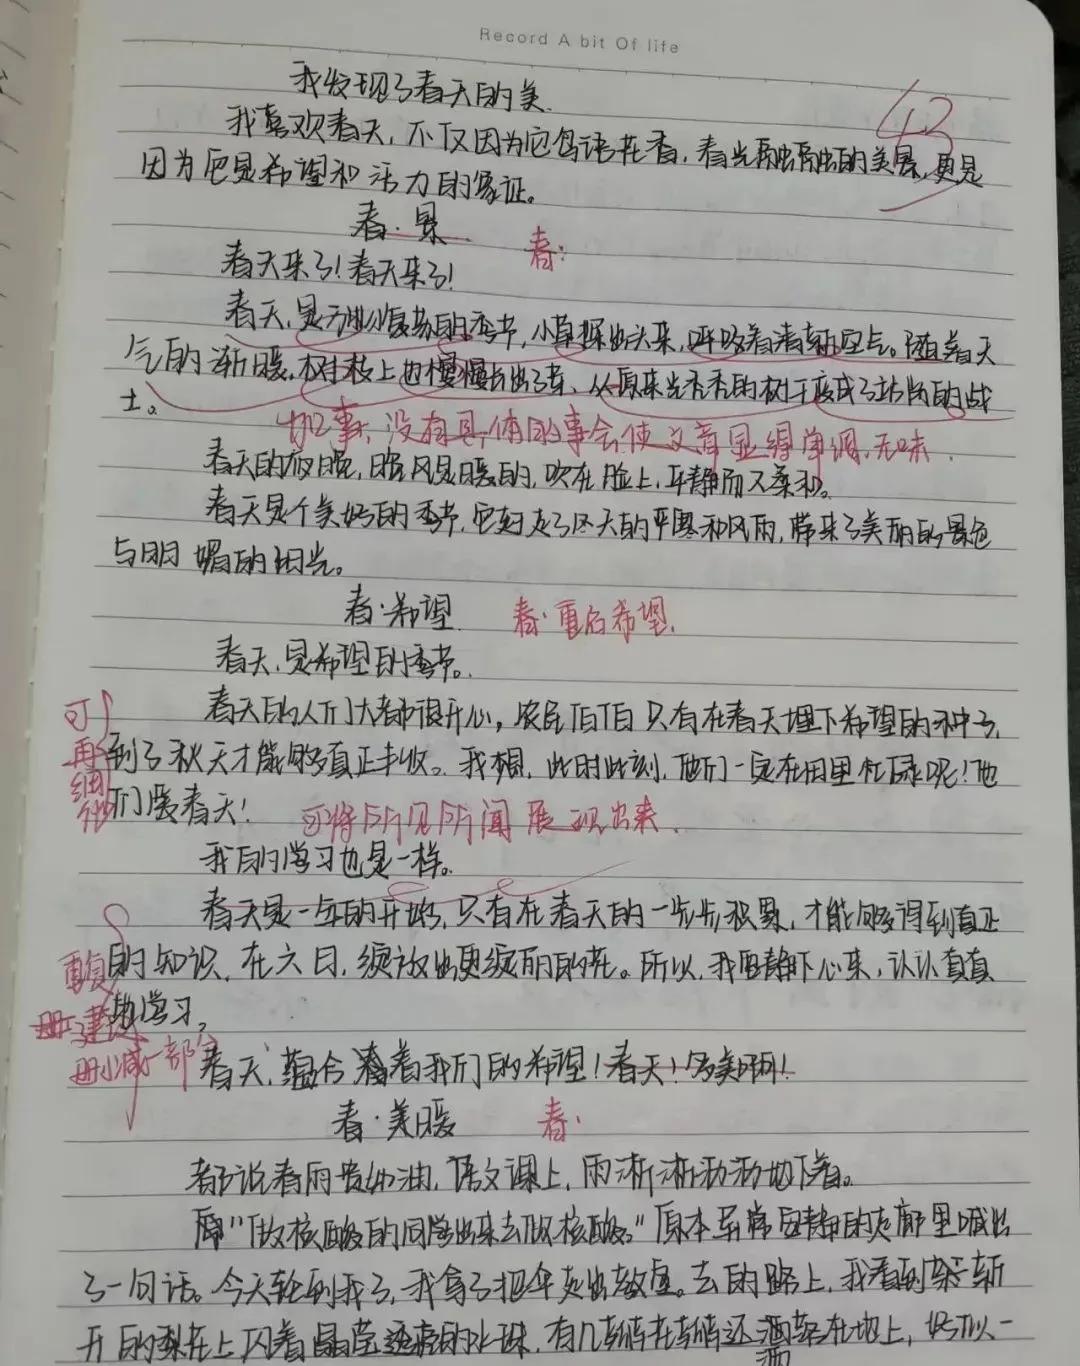 Record A bit Of life
我发现了春天的美.
43
我喜欢春天，不仅因为它鸟语花香，春光融融的美景，更是
因为它是希望和活力的象征。
春·景 春:
春天来了！春天来了！
春天，是万物复苏的季节，小草探出头来，呼吸着清新空气。随着天
气的渐暖，树枝上也慢慢长出了芽，从原来光秃秃的树干变成了站岗的战
士。
加事，没有具体的事会使文章显得单调，无味.
春天的夜晚，晚风是暖的，吹在脸上，平静而又柔和。
春天是个美好的季节，它赶走了冬天的严寒和风雨，带来了美丽的景色
与明媚的阳光。
春·希望 春·重启希望.
春天，是希望的季节。
春天的人们大都很开心，农民伯伯只有在春天埋下希望的种子，
可再细化
到了秋天才能够真正丰收。我想，此时此刻，他们一定在田里忙碌呢！他
们爱春天！ 可将所见所闻展现出来.
我的学习也是一样。
春天是一年的开始，只有在春天的一步步积累，才能够得到真正
的知识，在六月，绽放出更绚丽的花。所以，我要静下心来，认认真真
重复 建议删减一部分
地学习。
春天，蕴含着我们的希望！春天！多美啊！
春·美暖 春·
都说春雨贵如油，语文课上，雨淅淅沥沥地下着。
“做核酸的同学出来去做核酸。”原本异常安静的走廊里喊出
了一句话。今天轮到我了，我拿了把伞走出教室。去的路上，我看到渐渐
开的梨花上闪着晶莹透亮的水珠，有几辆花辆还洒落在地上，好似一